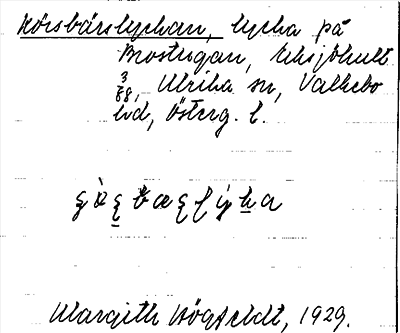 Körsbärslyckan, lycka på
Brostugan, Eksjöhult
3/88, Ulrika sn, Valkebo
hd, Österg. l.
Margith Högfeldt, 1929.